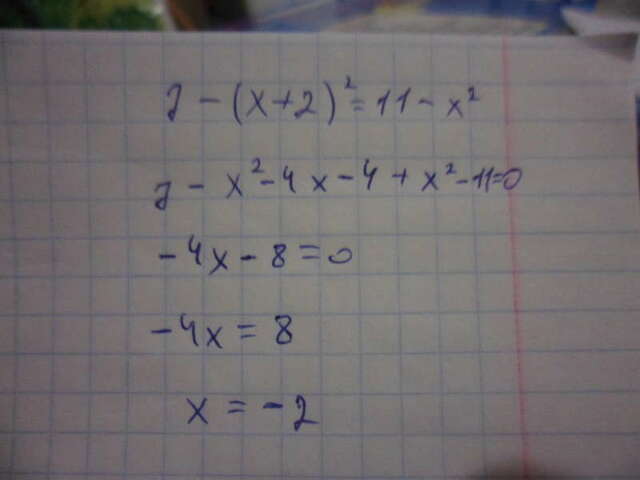 7 - (x+2)² = 11 - x²
7 - x² - 4x - 4 + x² - 11 = 0
-4x - 8 = 0
-4x = 8
x = -2